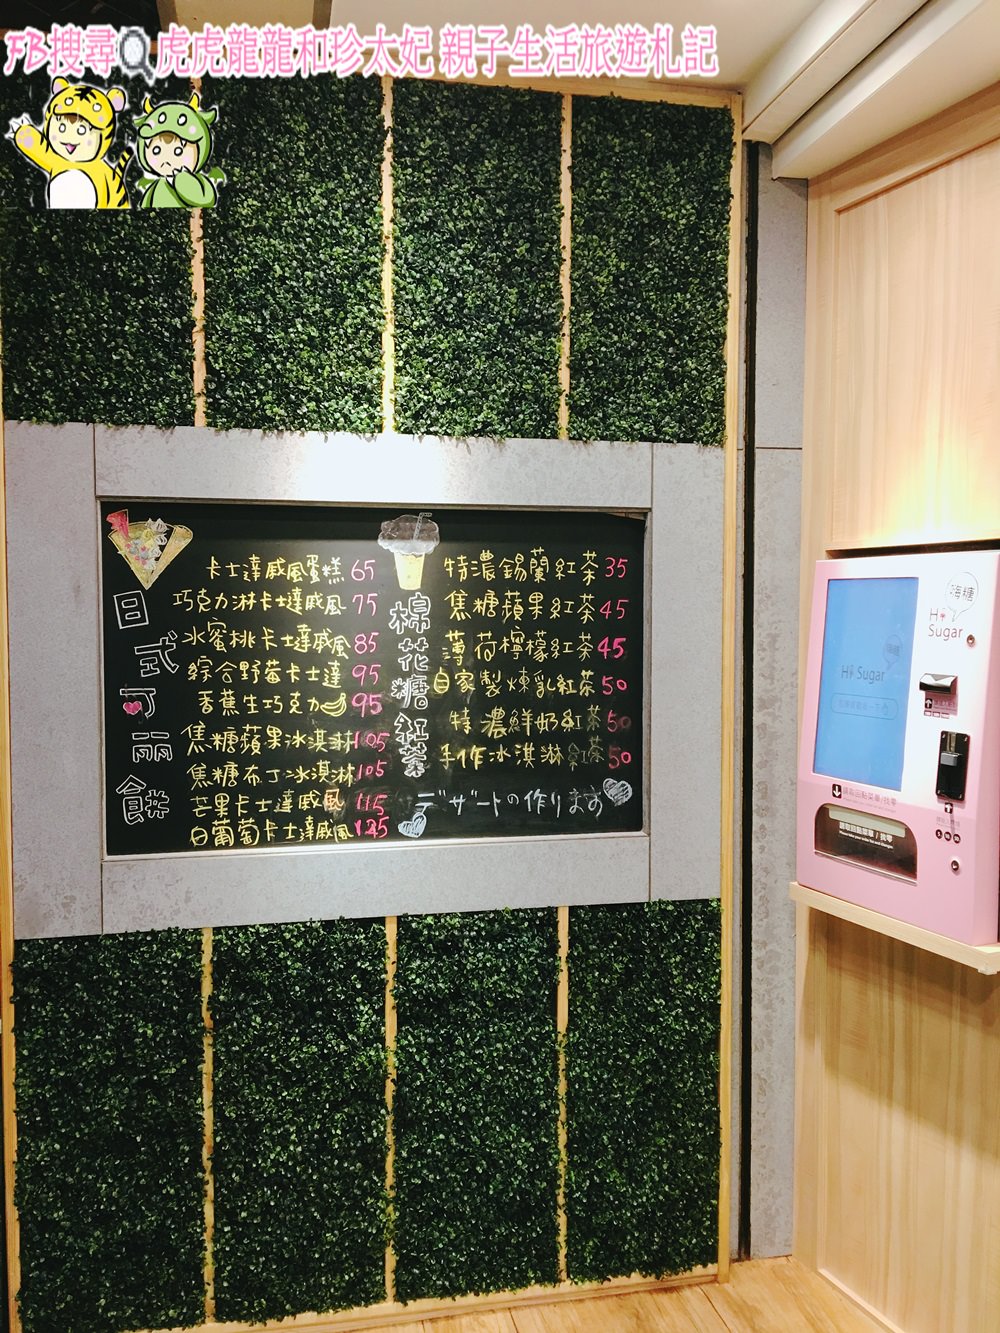 FB搜尋虎虎龍龍和珍太妃 親子生活旅遊札記
日式可麗餅
卡士達戚風蛋糕 65
巧克力淋卡士達戚風 75
水蜜桃卡士達戚風 85
綜合野莓卡士達 95
香蕉生巧克力 95
焦糖蘋果冰淇淋 105
焦糖布丁冰淇淋 105
芒果卡士達戚風 115
白葡萄卡士達戚風 125
棉花糖紅茶
特濃錫蘭紅茶 35
焦糖蘋果紅茶 45
薄荷檸檬紅茶 45
自家製煉乳紅茶 50
特濃鮮奶紅茶 50
手作冰淇淋紅茶 50
デザートの作ります
嗨糖
Hi Sugar
Hi Sugar
請取回點菜單/找零
請取回點菜單 / 找零